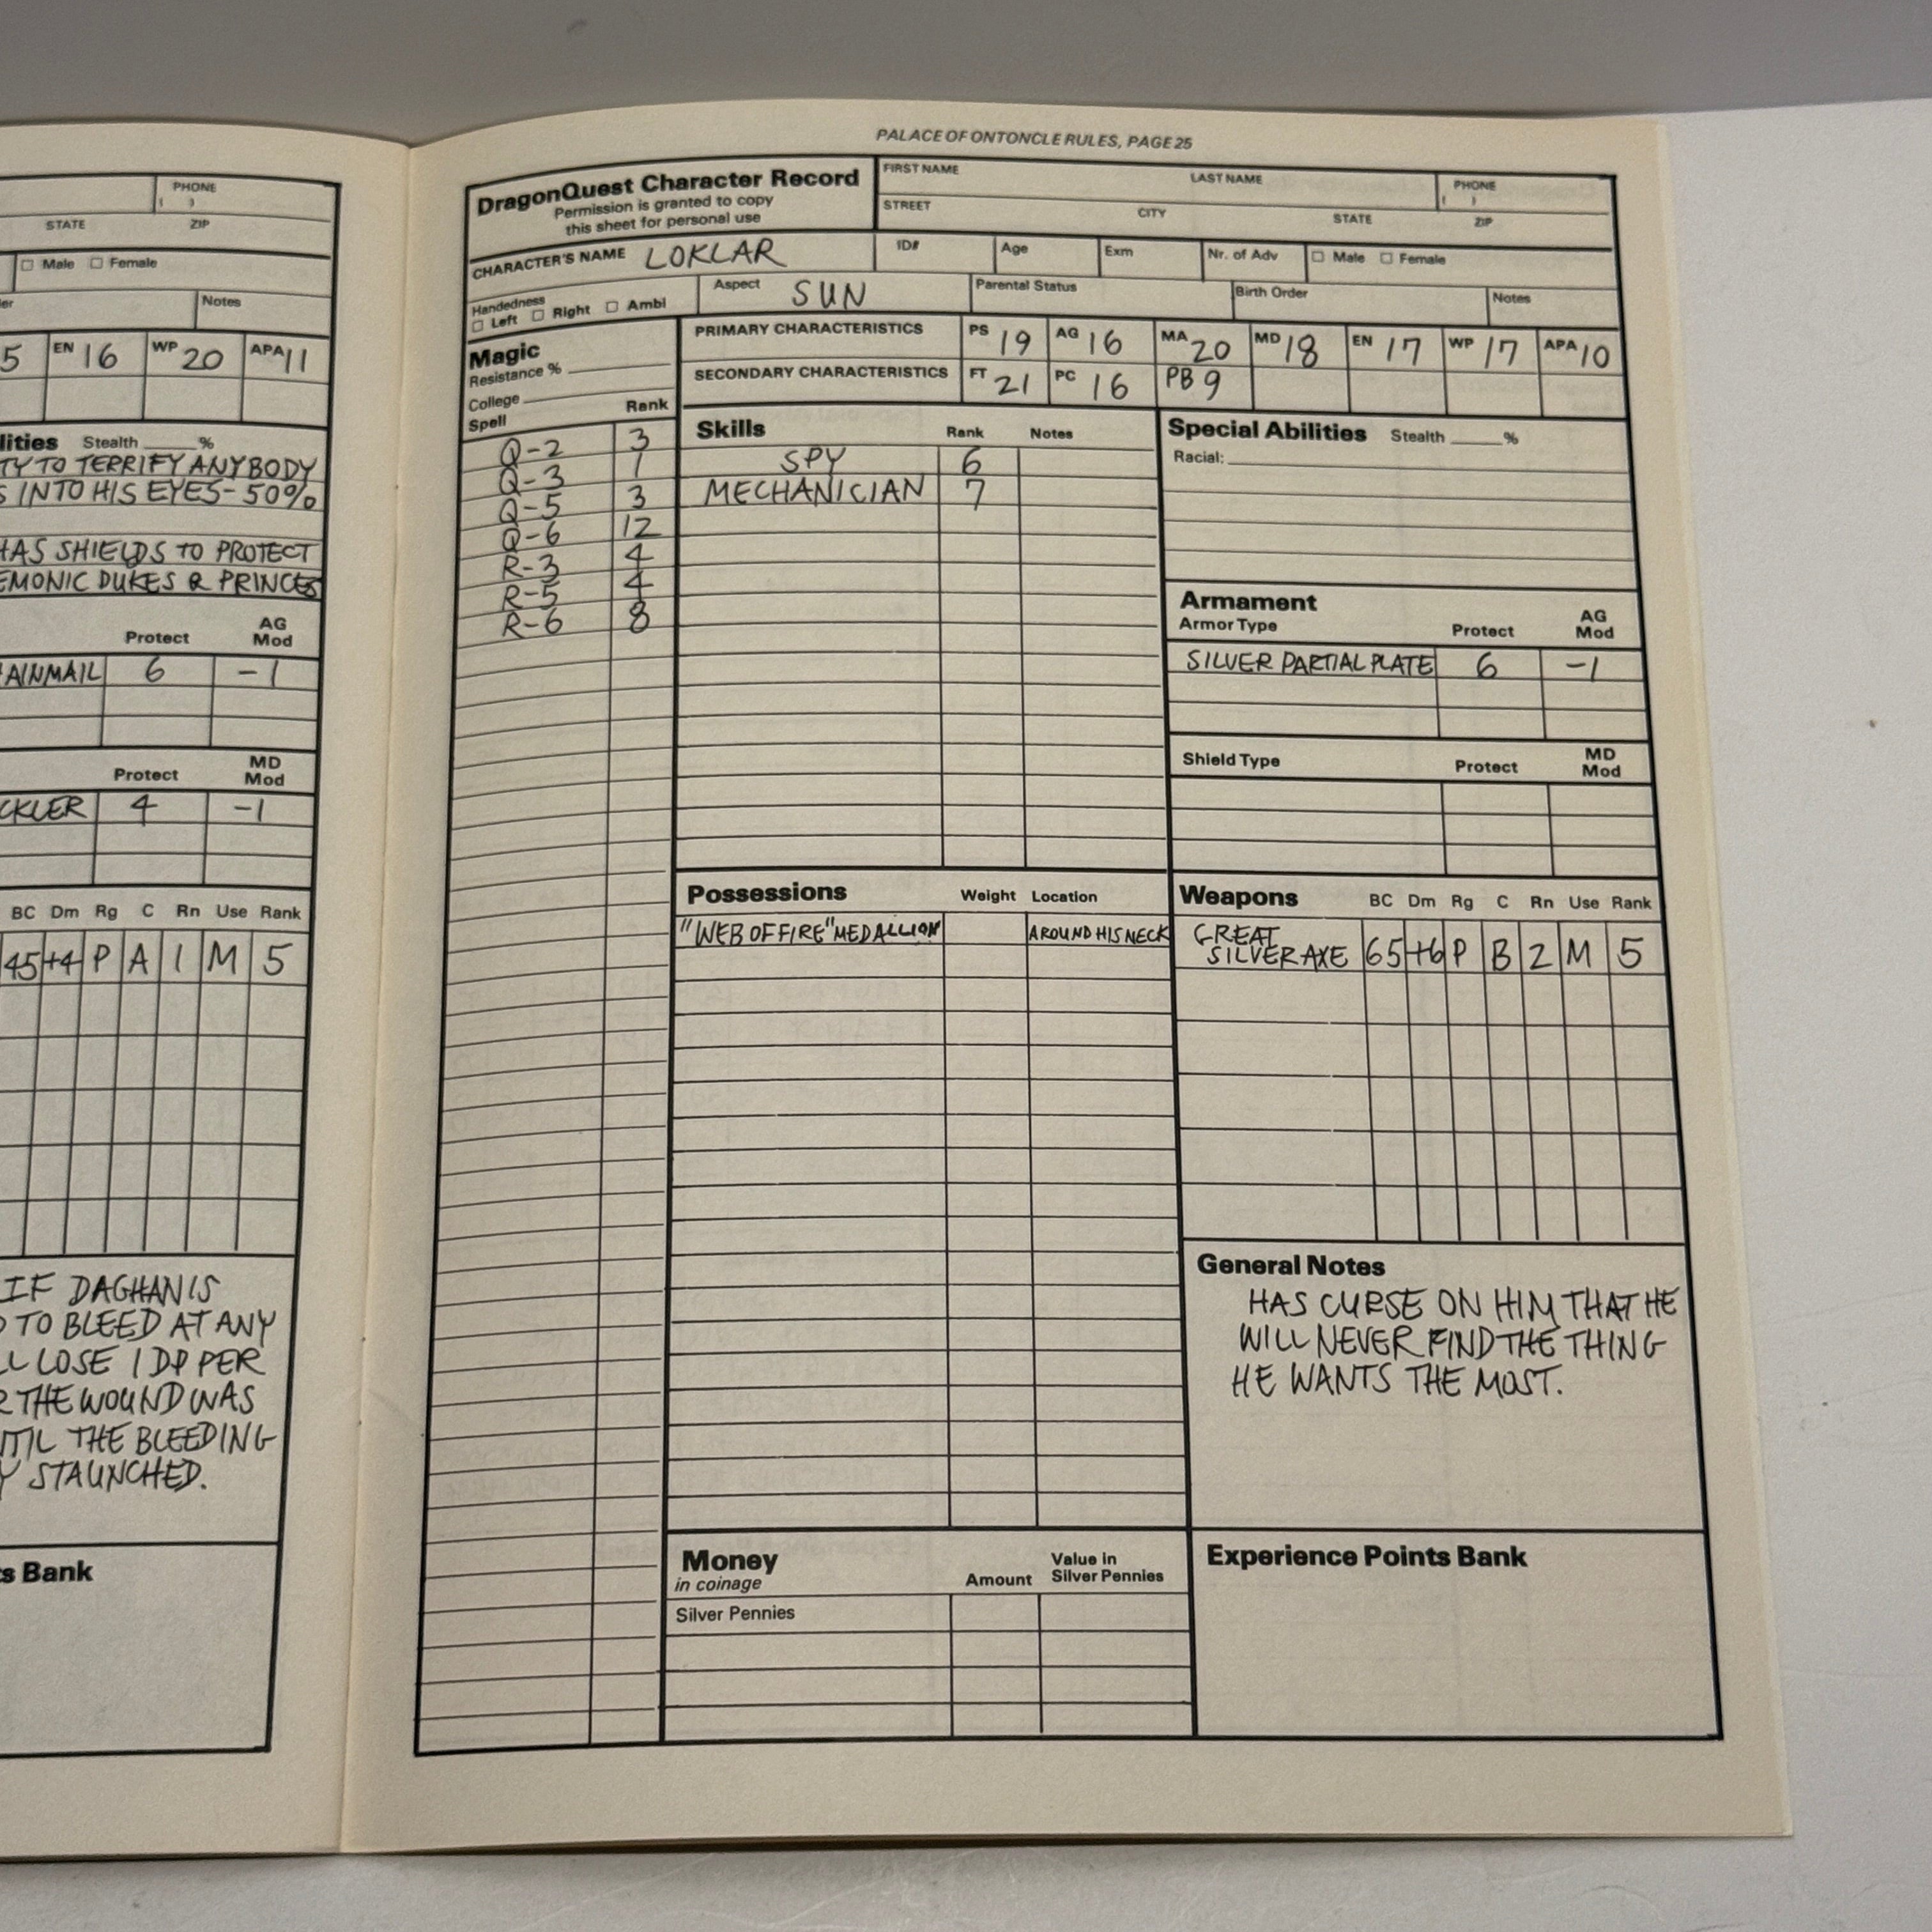 PHONE
( )
STATE ZIP
Male Female
Notes
5 EN 16 WP 20 APA 11
Stealth %
TO TERRIFY ANYBODY
INTO HIS EYES-50%
HAS SHIELDS TO PROTECT
DUKES & PRINCES
Protect AG Mod
6 -1
Protect MD Mod
4 -1
BC Dm Rg C Rn Use Rank
45 +4 P A 1 M 5
IF DAGHAN IS
TO BLEED AT ANY
LOSE 1 DP PER
THE WOUND WAS
THE BLEEDING
STAUNCHED.
Bank
PALACE OF ONTONCLE RULES, PAGE 25
DragonQuest Character Record
Permission is granted to copy
this sheet for personal use
FIRST NAME LAST NAME PHONE
( )
STREET CITY STATE ZIP
CHARACTER'S NAME LOKLAR ID# Age Exm Nr. of Adv Male Female
Handedness
Left Right Ambi
Aspect SUN Parental Status Birth Order Notes
PRIMARY CHARACTERISTICS PS 19 AG 16 MA 20 MD 18 EN 17 WP 17 APA 10
SECONDARY CHARACTERISTICS FT 21 PC 16 PB 9
Magic
Resistance %
College
Spell Rank
Q-2 3
Q-3 1
Q-5 3
Q-6 12
R-3 4
R-5 4
R-6 8
Skills Rank Notes
SPY 6
MECHANICIAN 7
Special Abilities Stealth %
Racial:
Armament
Armor Type Protect AG Mod
SILVER PARTIAL PLATE 6 -1
Shield Type Protect MD Mod
Possessions Weight Location
"WEB OF FIRE" MEDALLION AROUND HIS NECK
Weapons BC Dm Rg C Rn Use Rank
GREAT
SILVER AXE 65 +6 P B 2 M 5
General Notes
HAS CURSE ON HIM THAT HE
WILL NEVER FIND THE THING
HE WANTS THE MOST.
Money
in coinage Amount Value in Silver Pennies
Silver Pennies
Experience Points Bank